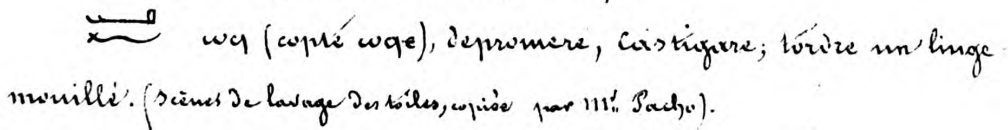 𓂝𓆑 ⲱϥ (copte ⲱϥⲉ), depromere, castigare; tordre un linge
mouillé. (Scènes de lavage des toiles, copiée par Mr. Pacho).